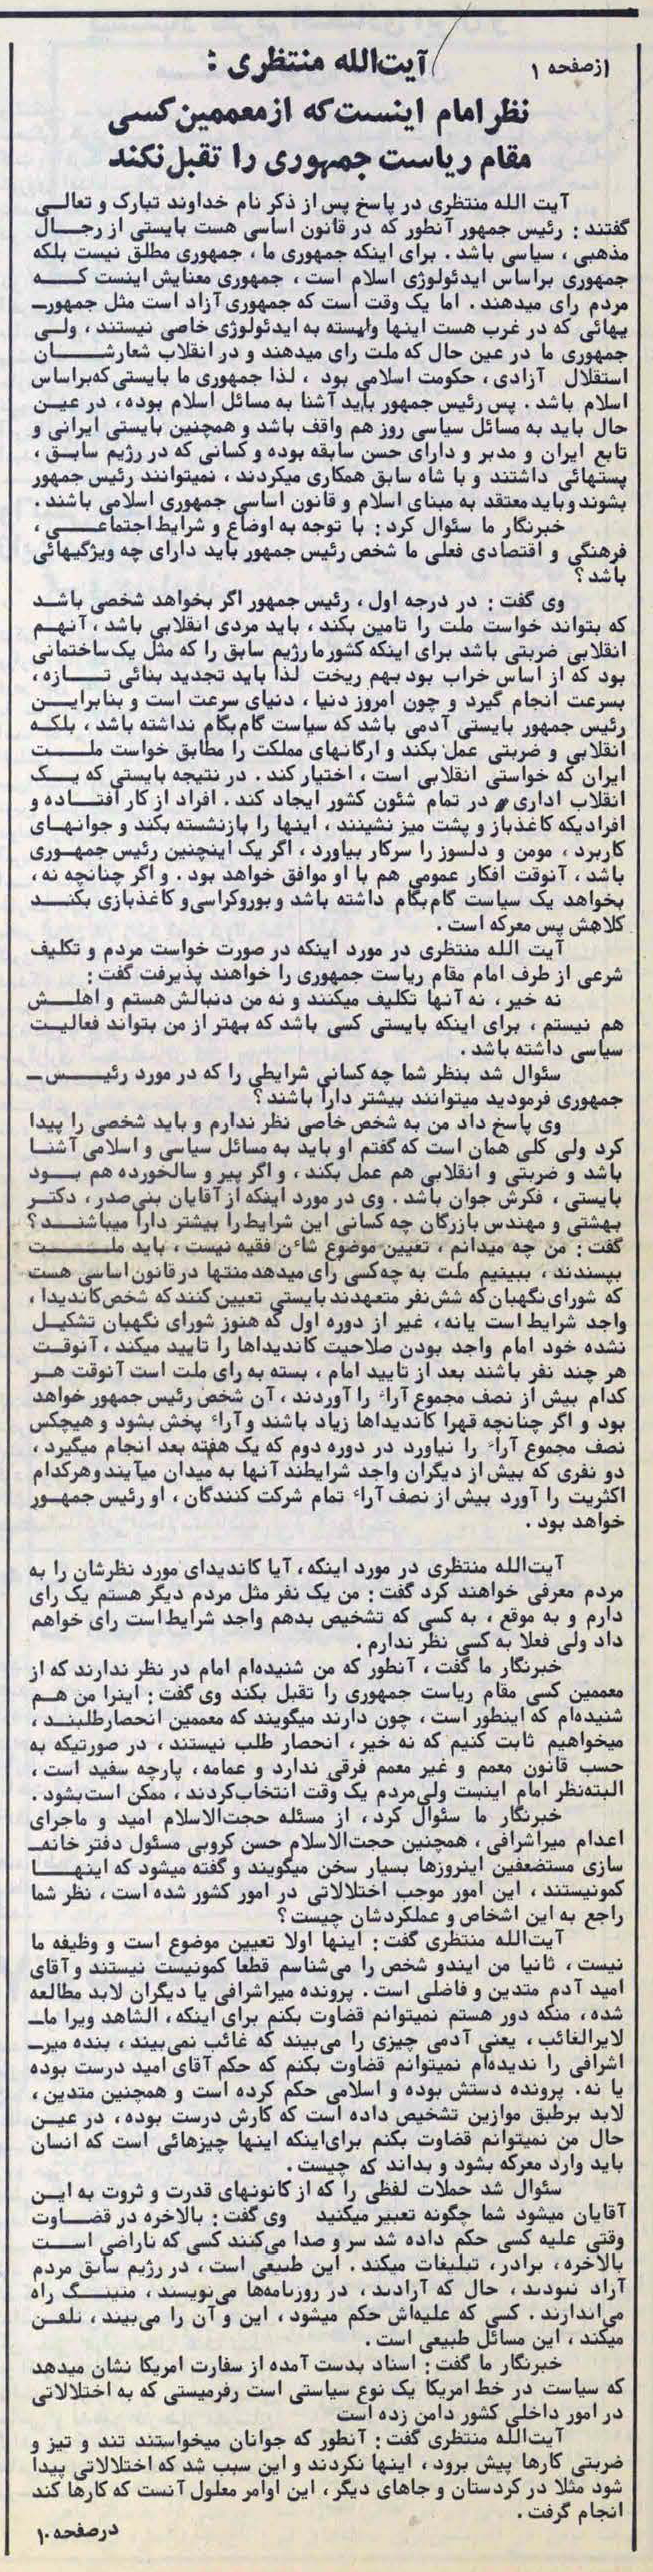 از صفحه ۱
آیت‌الله منتظری :
نظر امام اینست که از معممین کسی
مقام ریاست جمهوری را تقبل نکند
آیت الله منتظری در پاسخ پس از ذکر نام خداوند تبارک و تعالی
گفتند : رئیس جمهور آنطور که در قانون اساسی هست بایستی از رجال
مذهبی ، سیاسی باشد . برای اینکه جمهوری ما ، جمهوری مطلق نیست بلکه
جمهوری براساس ایدئولوژی اسلام است ، جمهوری معنایش اینست که
مردم رای میدهند . اما یک وقت است که جمهوری آزاد است مثل جمهور-
یهائی که در غرب هست اینها وابسته به ایدئولوژی خاصی نیستند ، ولی
جمهوری ما در عین حال که ملت رای میدهند و در انقلاب شعارشان
استقلال آزادی ، حکومت اسلامی بود ، لذا جمهوری ما بایستی که براساس
اسلام باشد . پس رئیس جمهور باید آشنا به مسائل اسلام بوده ، در عین
حال باید به مسائل سیاسی روز هم واقف باشد و همچنین بایستی ایرانی و
تابع ایران و مدبر و دارای حسن سابقه بوده و کسانی که در رژیم سابق ،
پستهائی داشتند و با شاه سابق همکاری میکردند ، نمیتوانند رئیس جمهور
بشوند و باید معتقد به مبنای اسلام و قانون اساسی جمهوری اسلامی باشند .
خبرنگار ما سئوال کرد : با توجه به اوضاع و شرایط اجتماعی ،
فرهنگی و اقتصادی فعلی ما شخص رئیس جمهور باید دارای چه ویژگیهائی
باشد ؟
وی گفت : در درجه اول ، رئیس جمهور اگر بخواهد شخصی باشد
که بتواند خواست ملت را تامین بکند ، باید مردی انقلابی باشد ، آنهم
انقلابی ضربتی باشد برای اینکه کشور ما رژیم سابق را که مثل یک ساختمانی
بود که از اساس خراب بود بهم ریخت لذا باید تجدید بنائی تازه ،
بسرعت انجام گیرد و چون امروز دنیا ، دنیای سرعت است و بنابراین
رئیس جمهور بایستی آدمی باشد که سیاست گام بگام نداشته باشد ، بلکه
انقلابی و ضربتی عمل بکند و ارگانهای مملکت را مطابق خواست ملت
ایران که خواستی انقلابی است ، اختیار کند . در نتیجه بایستی که یک
انقلاب اداری در تمام شئون کشور ایجاد کند . افراد از کار افتاده و
افرادیکه کاغذباز و پشت میز نشینند ، اینها را بازنشسته بکند و جوانهای
کاربرد ، مومن و دلسوز را سرکار بیاورد ، اگر یک اینچنین رئیس جمهوری
باشد ، آنوقت افکار عمومی هم با او موافق خواهد بود . و اگر چنانچه نه ،
بخواهد یک سیاست گام بگام داشته باشد و بوروکراسی و کاغذبازی بکند
کلاهش پس معرکه است .
آیت الله منتظری در مورد اینکه در صورت خواست مردم و تکلیف
شرعی از طرف امام مقام ریاست جمهوری را خواهند پذیرفت گفت :
نه خیر ، نه آنها تکلیف میکنند و نه من دنبالش هستم و اهلش
هم نیستم ، برای اینکه بایستی کسی باشد که بهتر از من بتواند فعالیت
سیاسی داشته باشد .
سئوال شد بنظر شما چه کسانی شرایطی را که در مورد رئیس-
جمهوری فرمودید میتوانند بیشتر دارا باشند ؟
وی پاسخ داد من به شخص خاصی نظر ندارم و باید شخصی را پیدا
کرد ولی کلی همان است که گفتم او باید به مسائل سیاسی و اسلامی آشنا
باشد و ضربتی و انقلابی هم عمل بکند ، و اگر پیر و سالخورده هم بود
بایستی ، فکرش جوان باشد . وی در مورد اینکه از آقایان بنی‌صدر ، دکتر
بهشتی و مهندس بازرگان چه کسانی این شرایط را بیشتر دارا میباشند ؟
گفت : من چه میدانم ، تعیین موضوع شاٴن فقیه نیست ، باید ملت
بپسندند ، ببینیم ملت به چه کسی رأی میدهد منتها در قانون اساسی هست
که شورای نگهبان که شش نفر متعهدند بایستی تعیین کنند که شخص کاندیدا ،
واجد شرایط است یا نه ، غیر از دوره اول که هنوز شورای نگهبان تشکیل
نشده خود امام واجد بودن صلاحیت کاندیداها را تایید میکند ، آنوقت
هر چند نفر باشند بعد از تایید امام ، بسته به رای ملت است آنوقت هر
کدام بیش از نصف مجموع آراء را آوردند ، آن شخص رئیس جمهور خواهد
بود و اگر چنانچه قهرا کاندیداها زیاد باشند و آراء پخش بشود و هیچکس
نصف مجموع آراء را نیاورد در دوره دوم که یک هفته بعد انجام میگیرد ،
دو نفری که بیش از دیگران واجد شرایطند آنها به میدان میآیند و هر کدام
اکثریت را آورد بیش از نصف آراء تمام شرکت کنندگان ، او رئیس جمهور
خواهد بود .
آیت‌الله منتظری در مورد اینکه ، آیا کاندیدای مورد نظرشان را به
مردم معرفی خواهند کرد گفت : من یک نفر مثل مردم دیگر هستم یک رای
دارم و به موقع ، به کسی که تشخیص بدهم واجد شرایط است رای خواهم
داد ولی فعلا به کسی نظر ندارم .
خبرنگار ما گفت ، آنطور که من شنیده‌ام امام در نظر ندارند که از
معممین کسی مقام ریاست جمهوری را تقبل بکند وی گفت : اینرا من هم
شنیده‌ام که اینطور است ، چون دارند میگویند که معممین انحصارطلبند ،
میخواهیم ثابت کنیم که نه خیر ، انحصار طلب نیستند ، در صورتیکه به
حسب قانون معمم و غیر معمم فرقی ندارد و عمامه ، پارچه سفید است ،
البته نظر امام اینست ولی مردم یک وقت انتخاب کردند ، ممکن است بشود .
خبرنگار ما سئوال کرد ، از مسئله حجت‌الاسلام امید و ماجرای
اعدام میراشرافی ، همچنین حجت‌الاسلام حسن کروبی مسئول دفتر خانه-
سازی مستضعفین اینروزها بسیار سخن میگویند و گفته میشود که اینها
کمونیستند ، این امور موجب اختلالاتی در امور کشور شده است ، نظر شما
راجع به این اشخاص و عملکردشان چیست ؟
آیت‌الله منتظری گفت : اینها اولا تعیین موضوع است و وظیفه ما
نیست ، ثانیا من ایندو شخص را می‌شناسم قطعا کمونیست نیستند و آقای
امید آدم متدین و فاضلی است . پرونده میراشرافی یا دیگران لابد مطالعه
شده ، منکه دور هستم نمیتوانم قضاوت بکنم برای اینکه ، الشاهد ویرا ما-
لایرالغائب ، یعنی آدمی چیزی را می‌بیند که غائب نمی‌بیند ، بنده میر-
اشرافی را ندیده‌ام نمیتوانم قضاوت بکنم که حکم آقای امید درست بوده
یا نه . پرونده دستش بوده و اسلامی حکم کرده است و همچنین متدین ،
لابد برطبق موازین تشخیص داده است که کارش درست بوده ، در عین
حال من نمیتوانم قضاوت بکنم برای اینکه اینها چیزهائی است که انسان
باید وارد معرکه بشود و بداند که چیست .
سئوال شد حملات لفظی را که از کانونهای قدرت و ثروت به این
آقایان میشود شما چگونه تعبیر میکنید وی گفت : بالاخره در قضاوت
وقتی علیه کسی حکم داده شد سر و صدا می‌کنند کسی که ناراضی است
بالاخره ، برادر ، تبلیغات میکند . این طبیعی است ، در رژیم سابق مردم
آزاد نبودند ، حال که آزادند ، در روزنامه‌ها می‌نویسند ، متینگ راه
می‌اندازند . کسی که علیه‌اش حکم میشود ، این و آن را می‌بیند ، تلفن
میکند ، این مسائل طبیعی است .
خبرنگار ما گفت : اسناد بدست آمده از سفارت امریکا نشان میدهد
که سیاست در خط امریکا یک نوع سیاستی است رفرمیستی که به اختلالاتی
در امور داخلی کشور دامن زده است
آیت‌الله منتظری گفت : آنطور که جوانان میخواستند تند و تیز و
ضربتی کارها پیش برود ، اینها نکردند و این سبب شد که اختلالاتی پیدا
شود مثلا در کردستان و جاهای دیگر ، این اوامر معلول آنست که کارها کند
انجام گرفت .
در صفحه ۱۰